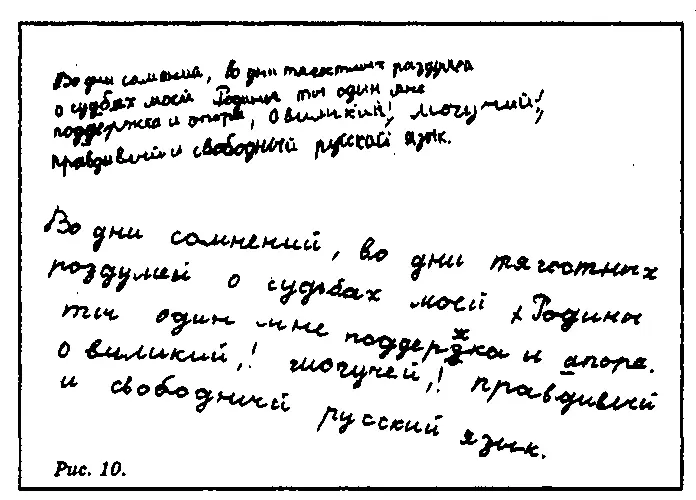 Во дни сомнений, во дни тягостных раздумев
о судьбах моей Родины ты один мне
поддержка и опора, о виликий!, могучий!,
правдивый и свободный русский язык.
Во дни сомнений, во дни тягостных
роздумей о судьбах моей Родины
ты один мне поддержка и апора.
о виликий,! могучей,! правдивий
и свободний русский язык.
Рис. 10.